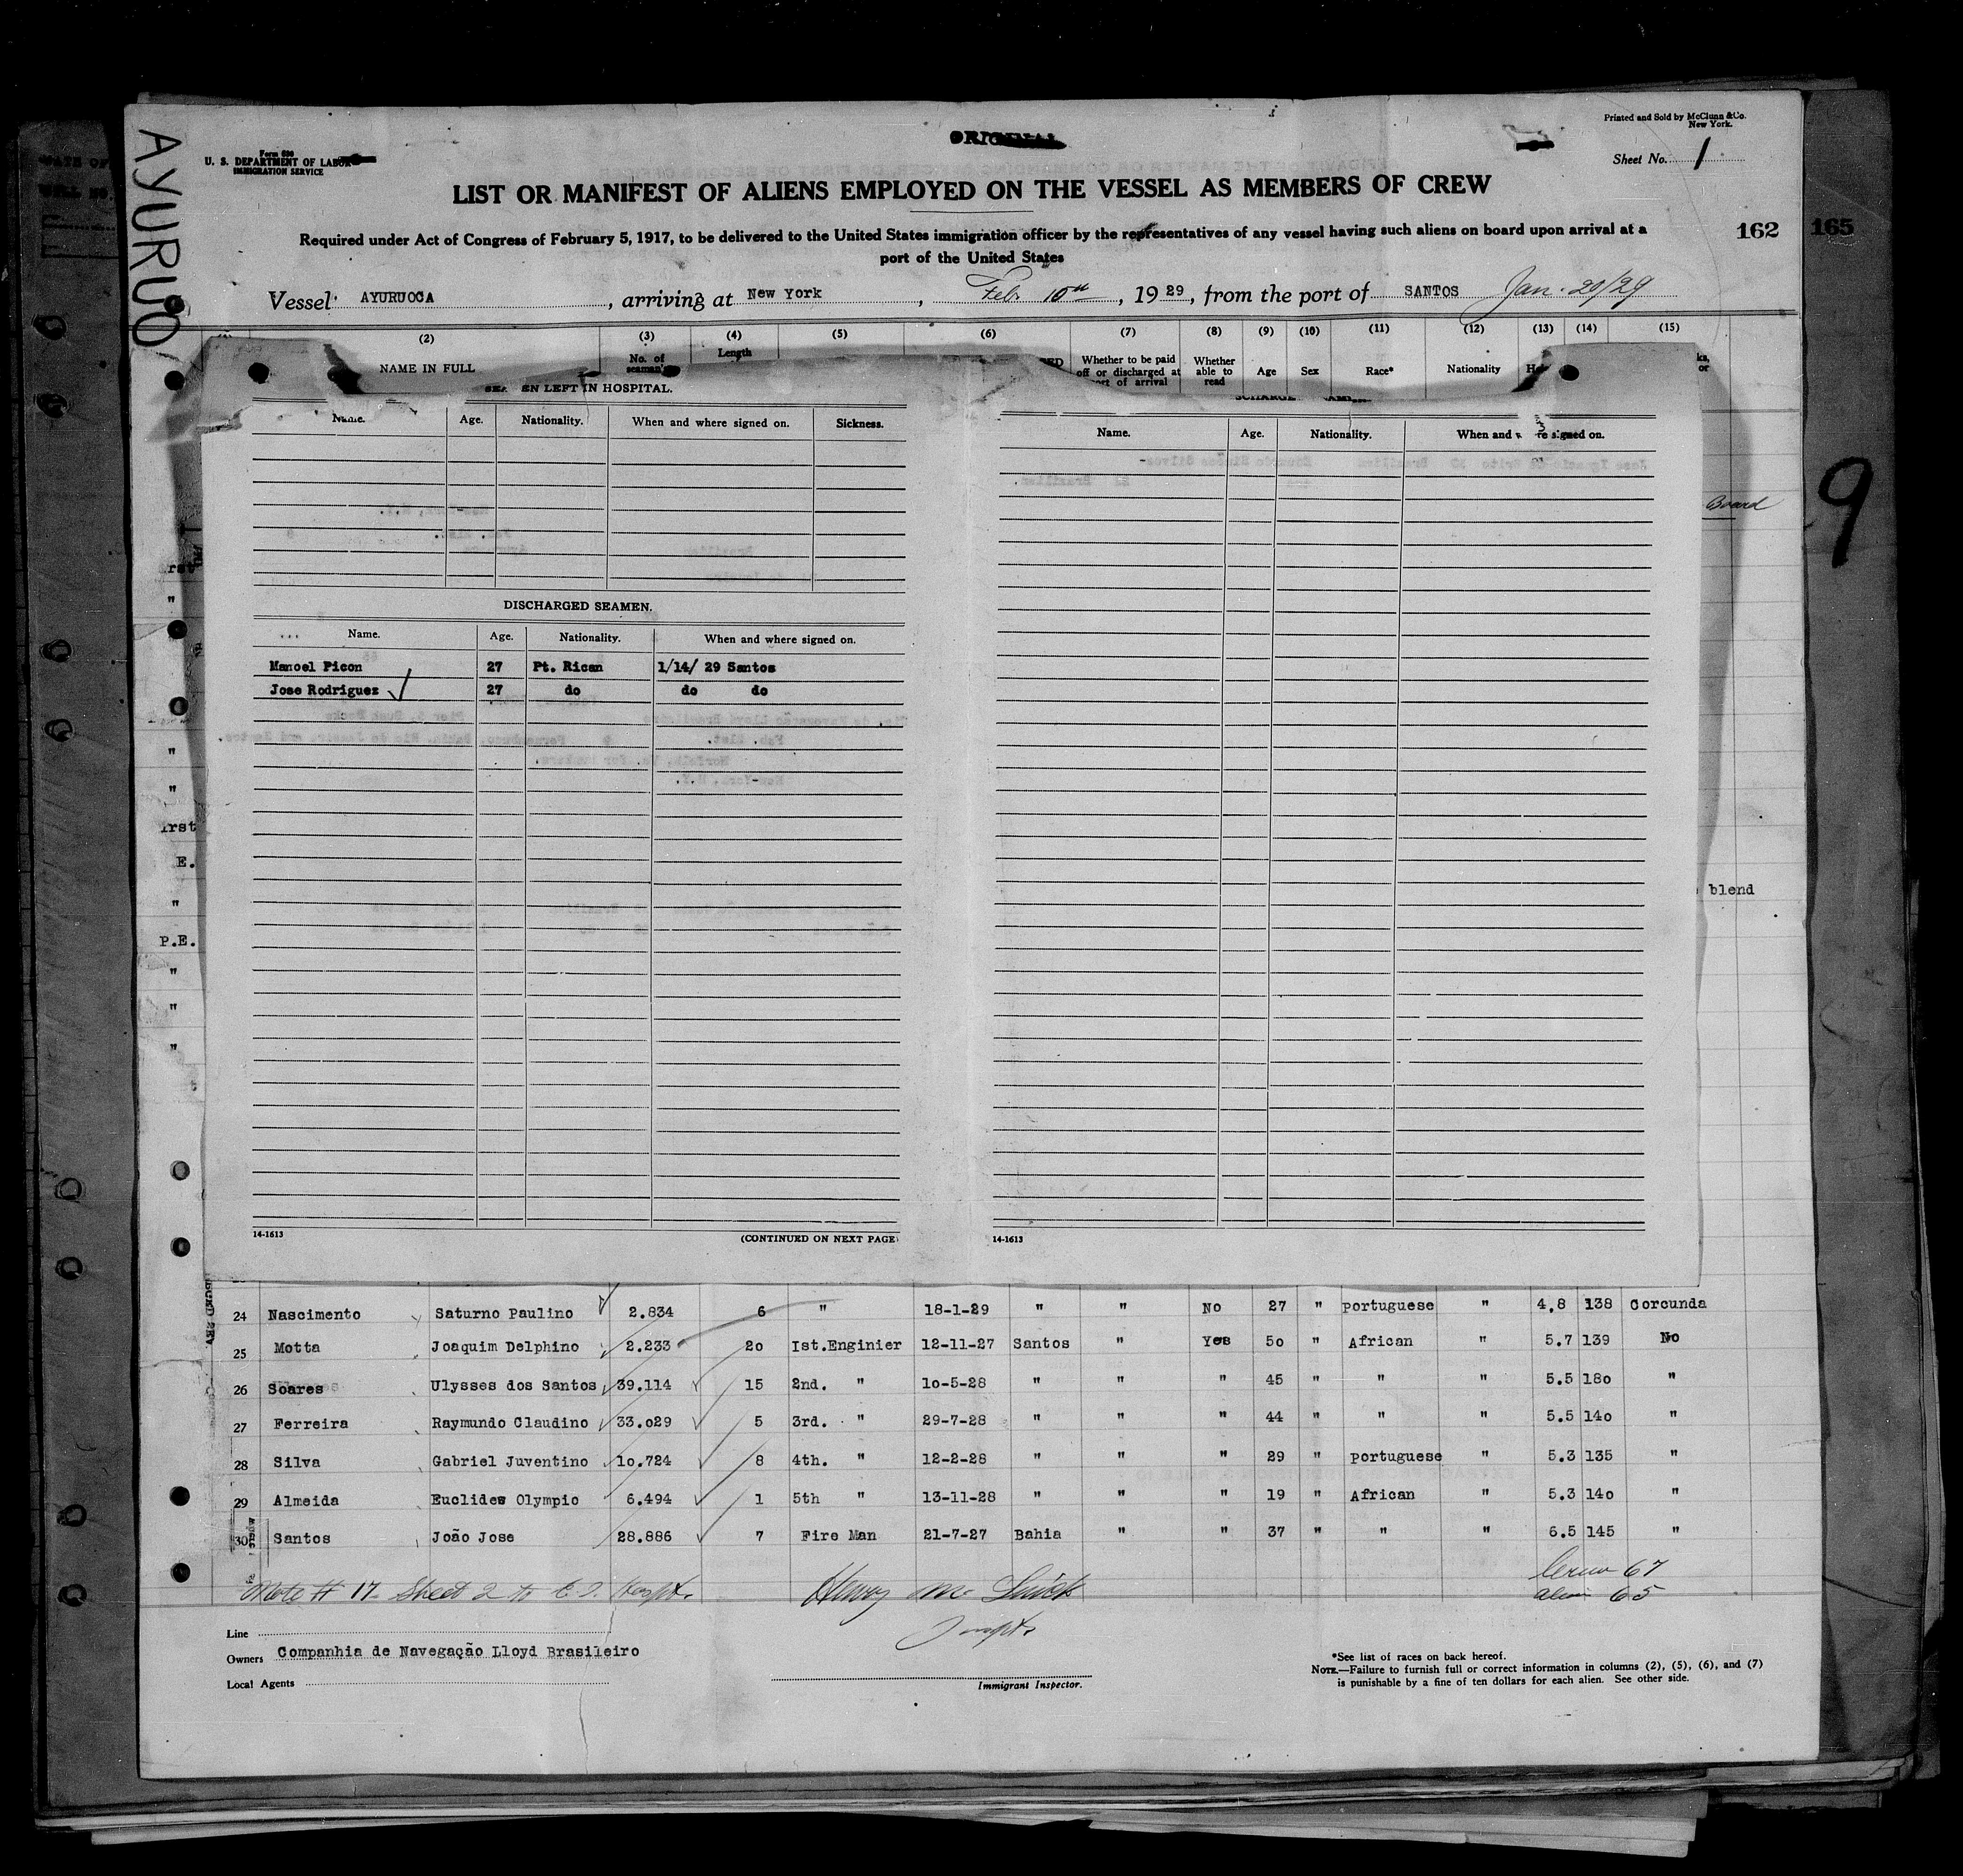 AYURUO
Form 680
U. S. DEPARTMENT OF LABOR
IMMIGRATION SERVICE
ORIGINAL
Printed and Sold by McClunn & Co.
New York.
Sheet No. 1
LIST OR MANIFEST OF ALIENS EMPLOYED ON THE VESSEL AS MEMBERS OF CREW
162 165
Required under Act of Congress of February 5, 1917, to be delivered to the United States immigration officer by the representatives of any vessel having such aliens on board upon arrival at a
port of the United States
Vessel AYURUOCA, arriving at New York, Feb. 10th, 1929, from the port of SANTOS Jan. 20/29
(2) (3) (4) (5) (6) (7) (8) (9) (10) (11) (12) (13) (14) (15)
NAME IN FULL No. of seaman's Length Whether to be paid off or discharged at port of arrival Whether able to read Age Sex Race* Nationality
EN LEFT IN HOSPITAL.
Name. Age. Nationality. When and where signed on. Sickness.
Name. Age. Nationality. When and where signed on.
9
Board
DISCHARGED SEAMEN.
Name. Age. Nationality. When and where signed on.
Manoel Picon 27 Pt. Rican 1/14/ 29 Santos
Jose Rodriguez 27 do do do
rst
"
"
"
irst
E.
"
P.E.
"
"
"
blend
14-1613 (CONTINUED ON NEXT PAGE)
14-1613
24 Nascimento Saturno Paulino 2.834 6 " 18-1-29 " " No 27 " portuguese " 4.8 138 Corcunda
25 Motta Joaquim Delphino 2.233 20 Ist.Enginier 12-11-27 Santos " Yes 50 " African " 5.7 139 No
26 Soares Ulysses dos Santos 39.114 15 2nd. " 10-5-28 " " " 45 " " " 5.5 180 "
27 Ferreira Raymundo Claudino 33.029 5 3rd. " 29-7-28 " " " 44 " " " 5.5 140 "
28 Silva Gabriel Juventino 10.724 8 4th. " 12-2-28 " " " 29 " portuguese " 5.3 135 "
29 Almeida Euclides Olympio 6.494 1 5th " 13-11-28 " " " 19 " African " 5.3 140 "
30 Santos João Jose 28.886 7 Fire Man 21-7-27 Bahia " " 37 " " " 6.5 145 "
Note # 17 - Sheet 2 to E.I. Hospt.
67
65
Line
Owners Companhia de Navegação Lloyd Brasileiro
Local Agents
Immigrant Inspector.
*See list of races on back hereof.
NOTE.—Failure to furnish full or correct information in columns (2), (5), (6), and (7)
is punishable by a fine of ten dollars for each alien. See other side.